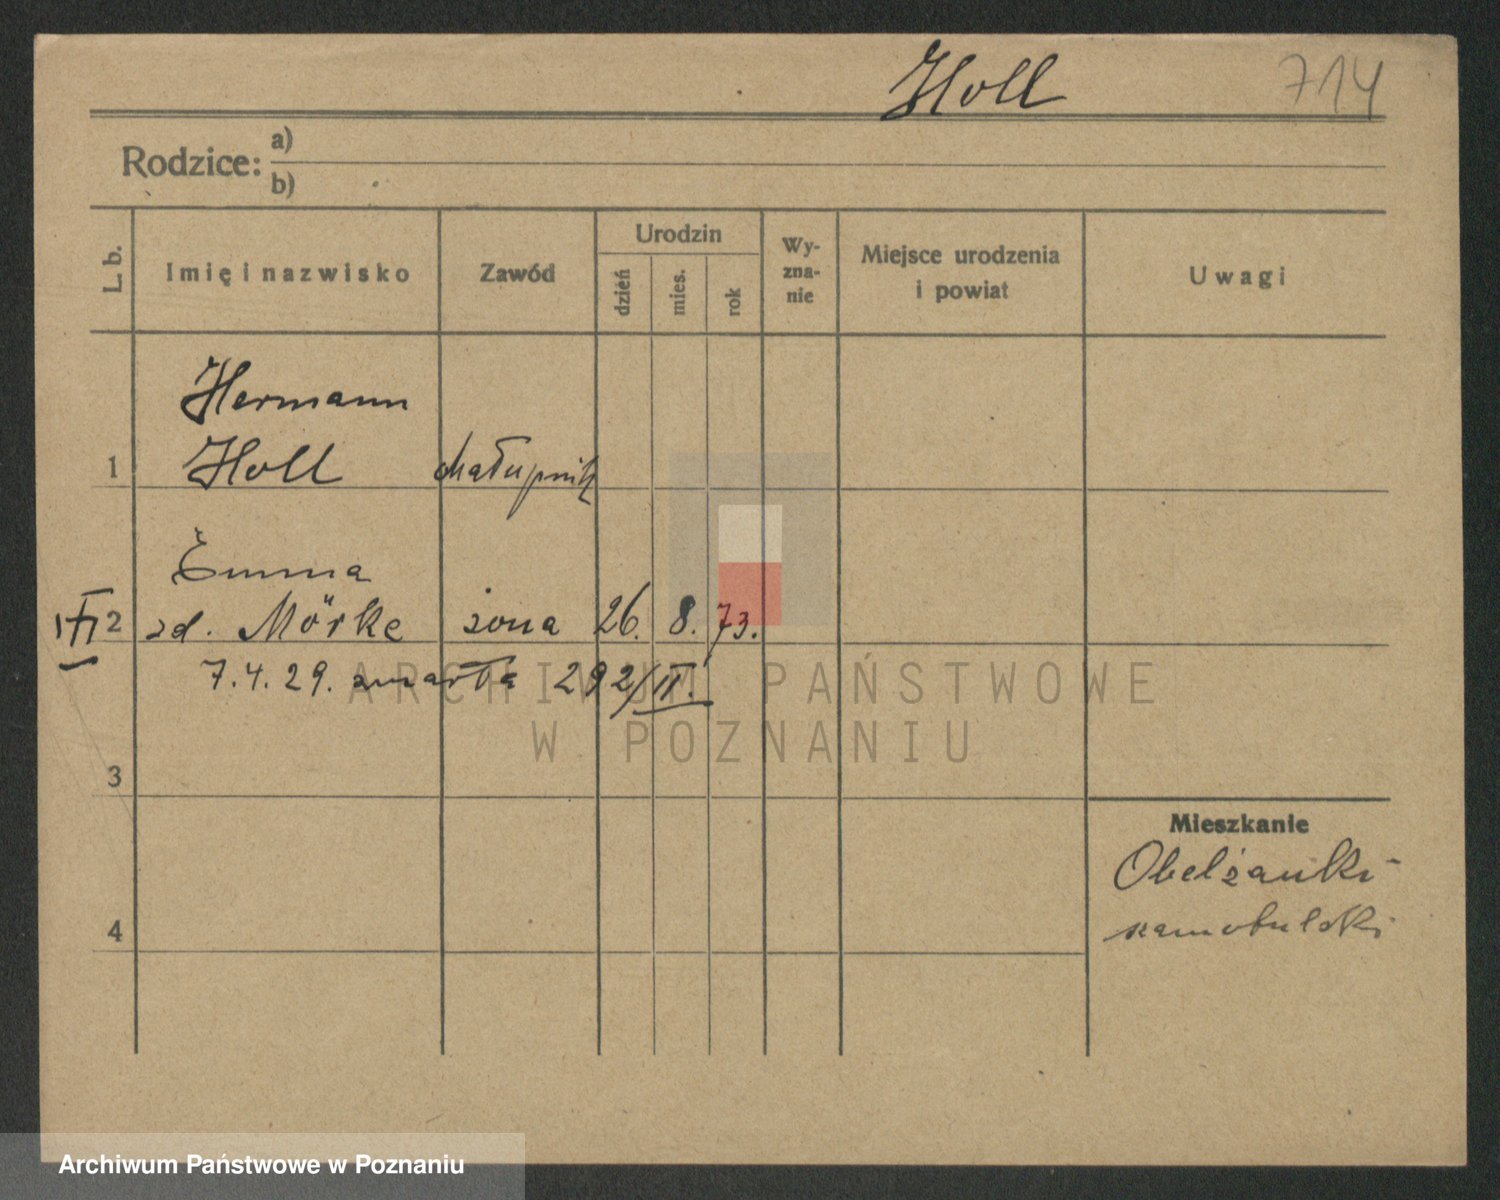 Holl 714
Rodzice: a)
b)
L. b. Imię i nazwisko Zawód Urodzin dzień mies. rok Wy-zna-nie Miejsce urodzenia i powiat Uwagi
Hermann
1 Holl chałupnik
Emma
2 zd. Mörke żona 26. 8. 73.
7.4.29. zmarła 292/II.
ARCHIWUM PAŃSTWOWE
W POZNANIU
3
Mieszkanie
Obelżanki
4 szamotulski
Archiwum Państwowe w Poznaniu